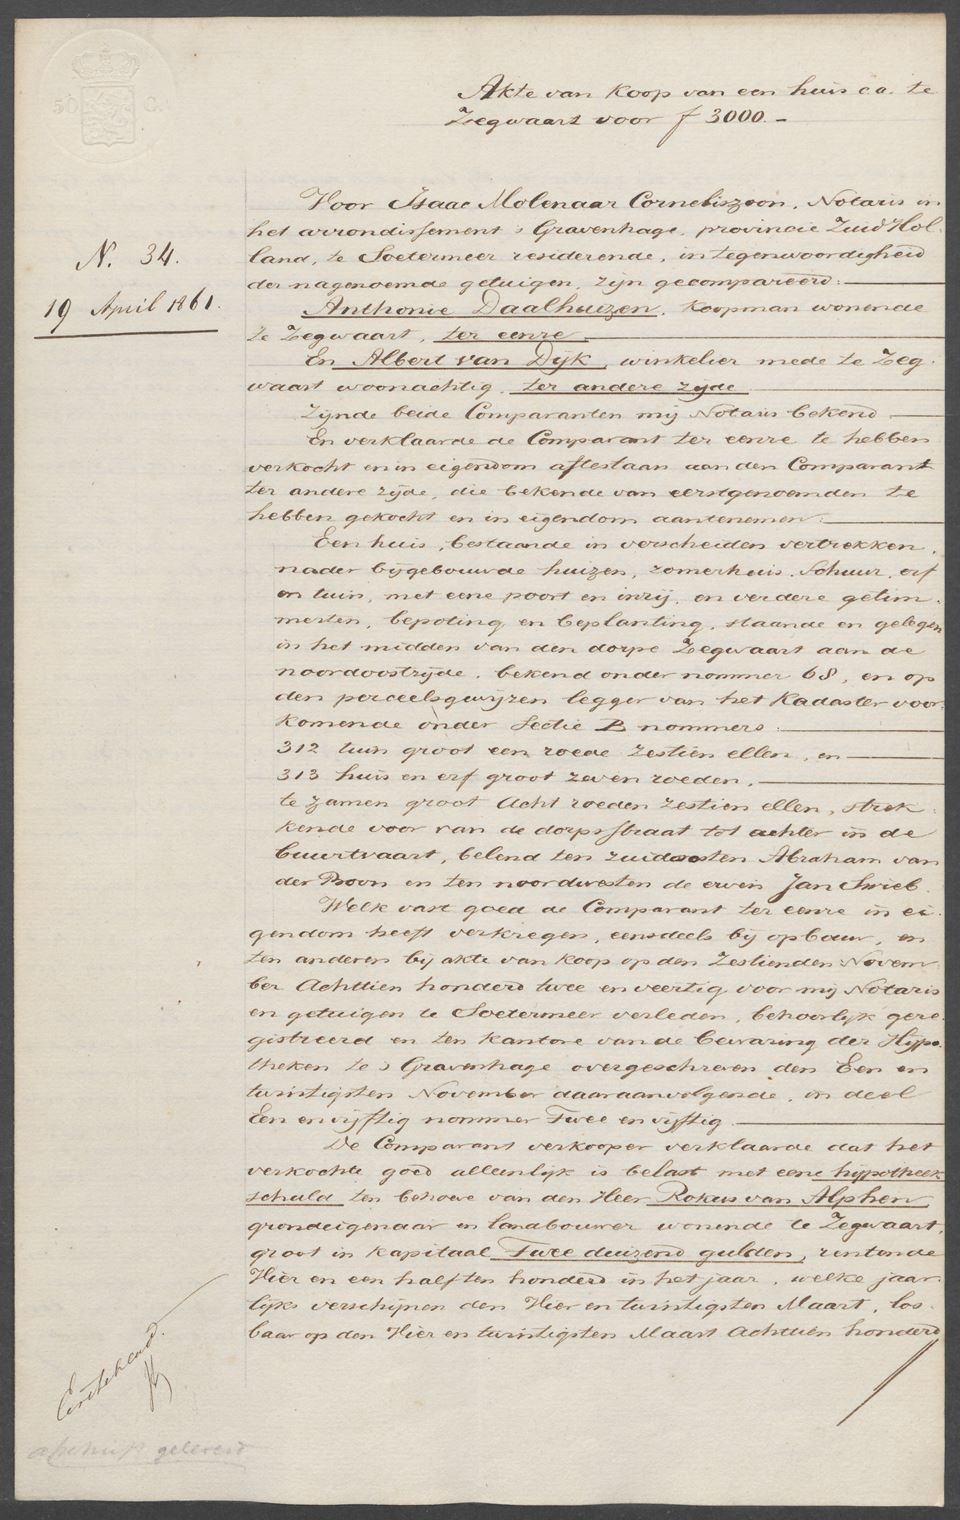 50 C.
Akte van Koop van een huis c.a. te
Zegwaart voor f 3000.-
N. 34.
19 April 1861.
Voor Isaac Molenaar Corneliszoon, Notaris in
het arrondissement 's Gravenhage, provincie Zuid Hol-
land, te Soetermeer residerende, in tegenwoordigheid
der nagenoemde getuigen, zijn gecompareerd:
Anthonie Daalhuizen, Koopman wonende
te Zegwaart, ter eenre
En Albert van Dijk, winkelier mede te Zeg-
waart woonachtig, ter andere zijde
Zijnde beide Comparanten mij Notaris bekend
En verklaarde de Comparant ter eenre te hebben
verkocht en in eigendom aftestaan aan den Comparant
ter andere zijde, die bekende van eerstgenoemden te
hebben gekocht en in eigendom aantenemen:
Een huis, bestaande in verscheiden vertrekken,
nader bijgebouwde huizen, zomerhuis, Schuur, erf
en tuin, met eene poort en inrij, en verdere getim-
merten, bepoting en beplanting, staande en gelegen
in het midden van den dorpe Zegwaart aan de
noordoostzijde, bekend onder nommer 68, en op
den perceelsgewijzen legger van het Kadaster voor-
komende onder Sectie B nommers:
312 tuin groot een roede zestien ellen, en
313 huis en erf groot zeven roeden,
te zamen groot Acht roeden zestien ellen, strek-
kende voor van de dorpsstraat tot achter in de
buurtvaart, belend ten zuidoosten Abraham van
der Boon en ten noordwesten de erven Jan
Welk vast goed de Comparant ter eenre in ei-
gendom heeft verkregen, eensdeels bij opbouw, en
ten anderen bij akte van koop op den Zestienden Novem-
ber Achttien honderd twee en veertig voor mij Notaris
en getuigen te Soetermeer verleden, behoorlijk gere-
gistreerd en ten kantore van de bewaring der Hypo-
theken te 's Gravenhage overgeschreven den Een en
twintigsten November daaraanvolgende, in deel
Een en vijftig nommer Twee en vijftig.
De Comparant verkooper verklaarde dat het
verkochte goed alleenlijk is belast met eene hypotheek
schuld ten behoeve van den Heer Rokus van Alphen
grondeigenaar en landbouwer wonende te Zegwaart,
groot in kapitaal Twee duizend gulden, rentende
Vier en een half ten honderd in het jaar, welke jaar-
lijks verschijnen den Vier en twintigsten Maart, los-
baar op den Vier en twintigsten Maart Achttien honderd
afschrift geleverd